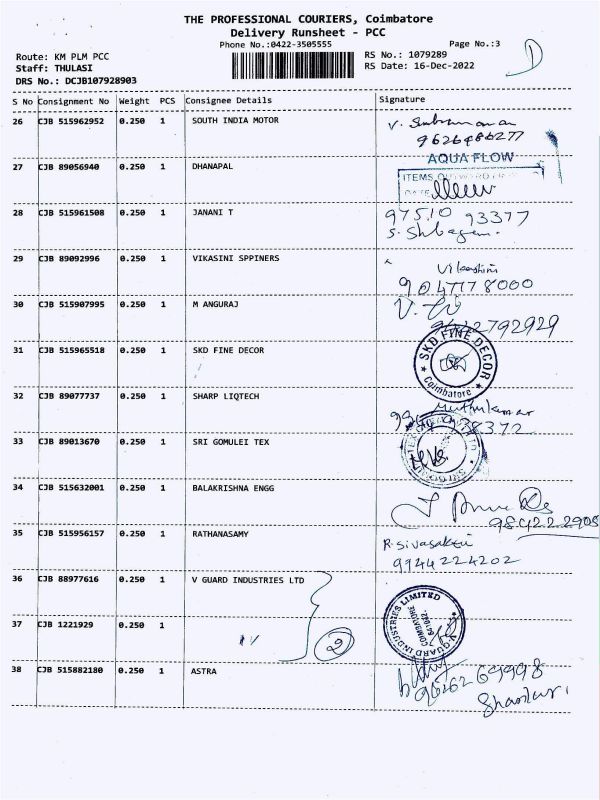 THE PROFESSIONAL COURIERS, Coimbatore
Delivery Runsheet - PCC
Phone No.:0422-3505555
Page No.:3
Route: KM PLM PCC
RS No.: 1079289
Staff: THULASI
RS Date: 16-Dec-2022
DRS No.: DCJB107928903
D
S No Consignment No Weight PCS Consignee Details Signature
26 CJB 515962952 0.250 1 SOUTH INDIA MOTOR
9626486277
27 CJB 89056940 0.250 1 DHANAPAL
AQUA FLOW
ITEMS
28 CJB 515961508 0.250 1 JANANI T
97510 93377
29 CJB 89092996 0.250 1 VIKASINI SPPINERS
9047178000
30 CJB 515907995 0.250 1 M ANGURAJ
31 CJB 515965518 0.250 1 SKD FINE DECOR
SKD FINE DECOR
Coimbatore
32 CJB 89077737 0.250 1 SHARP LIQTECH
Muthukumar
33 CJB 89013670 0.250 1 SRI GOMULEI TEX
34 CJB 515632001 0.250 1 BALAKRISHNA ENGG
98422 2905
35 CJB 515956157 0.250 1 RATHANASAMY
R. Sivasakti
9944224202
36 CJB 88977616 0.250 1 V GUARD INDUSTRIES LTD
V-GUARD INDUSTRIES LIMITED
COIMBATORE
641042.
37 CJB 1221929 0.250 1
2
38 CJB 515882180 0.250 1 ASTRA